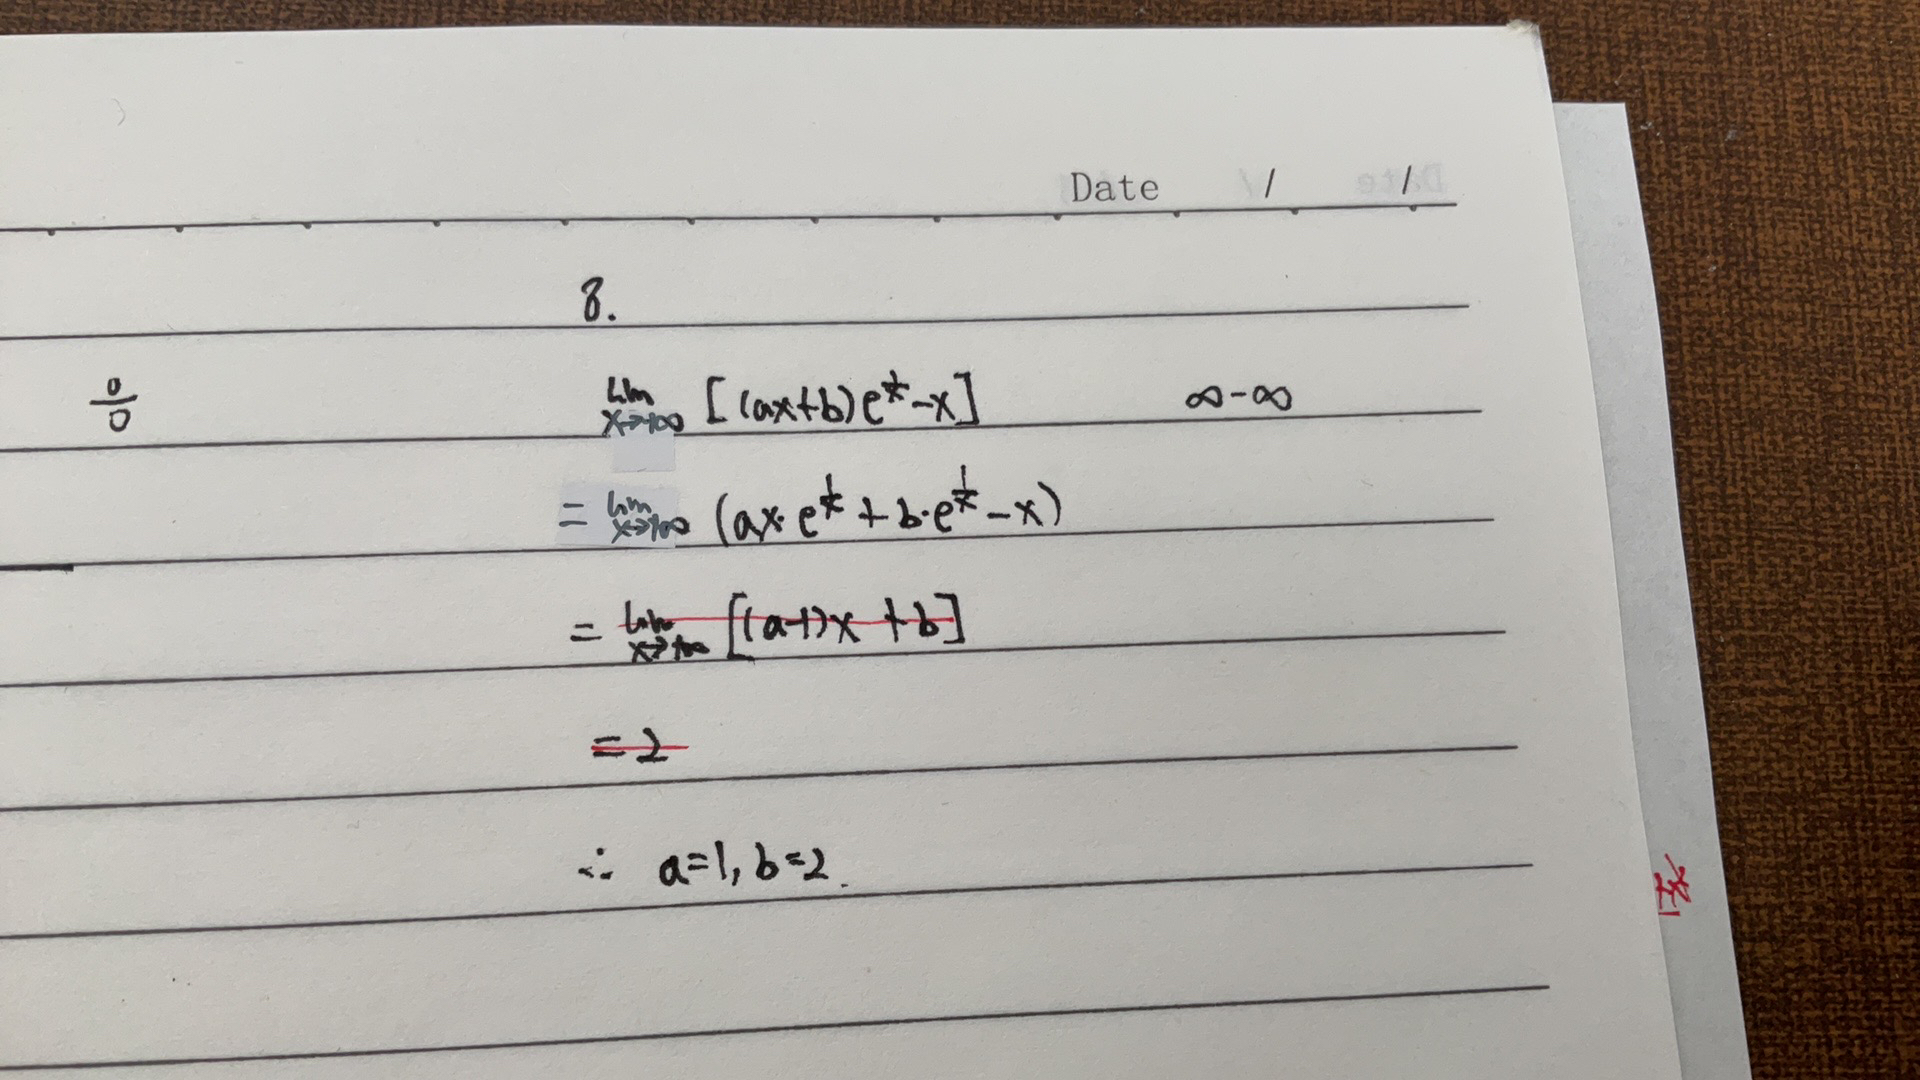 Date / /
8.
0/0
lim x→+∞ [(ax+b)e^(1/x) - x] ∞-∞
= lim x→+∞ (ax·e^(1/x) + b·e^(1/x) - x)
= lim x→+∞ [(a-1)x + b]
= 2
∴ a=1, b=2.